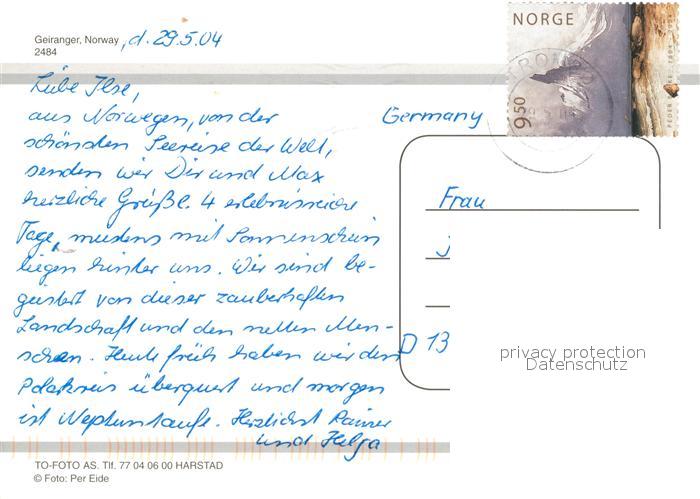 Geiranger, Norway
2484
, d. 29.5.04
NORGE
9,50
Liebe Ilse,
aus Norwegen, von der
schönsten Seereise der Welt,
senden wir Dir und Max
herzliche Grüße. 4 erlebnisreiche
Tage, meistens mit Sonnenschein
liegen hinter uns. Wir sind be-
geistert von dieser zauberhaften
Landschaft und den netten Men-
schen. Heute früh haben wir den
Polarkreis überquert und morgen
ist Neptuntaufe. Herzlichst Rainer
und Helga
Germany
Frau
D 13
privacy protection
Datenschutz
TO-FOTO AS. Tlf. 77 04 06 00 HARSTAD
© Foto: Per Eide